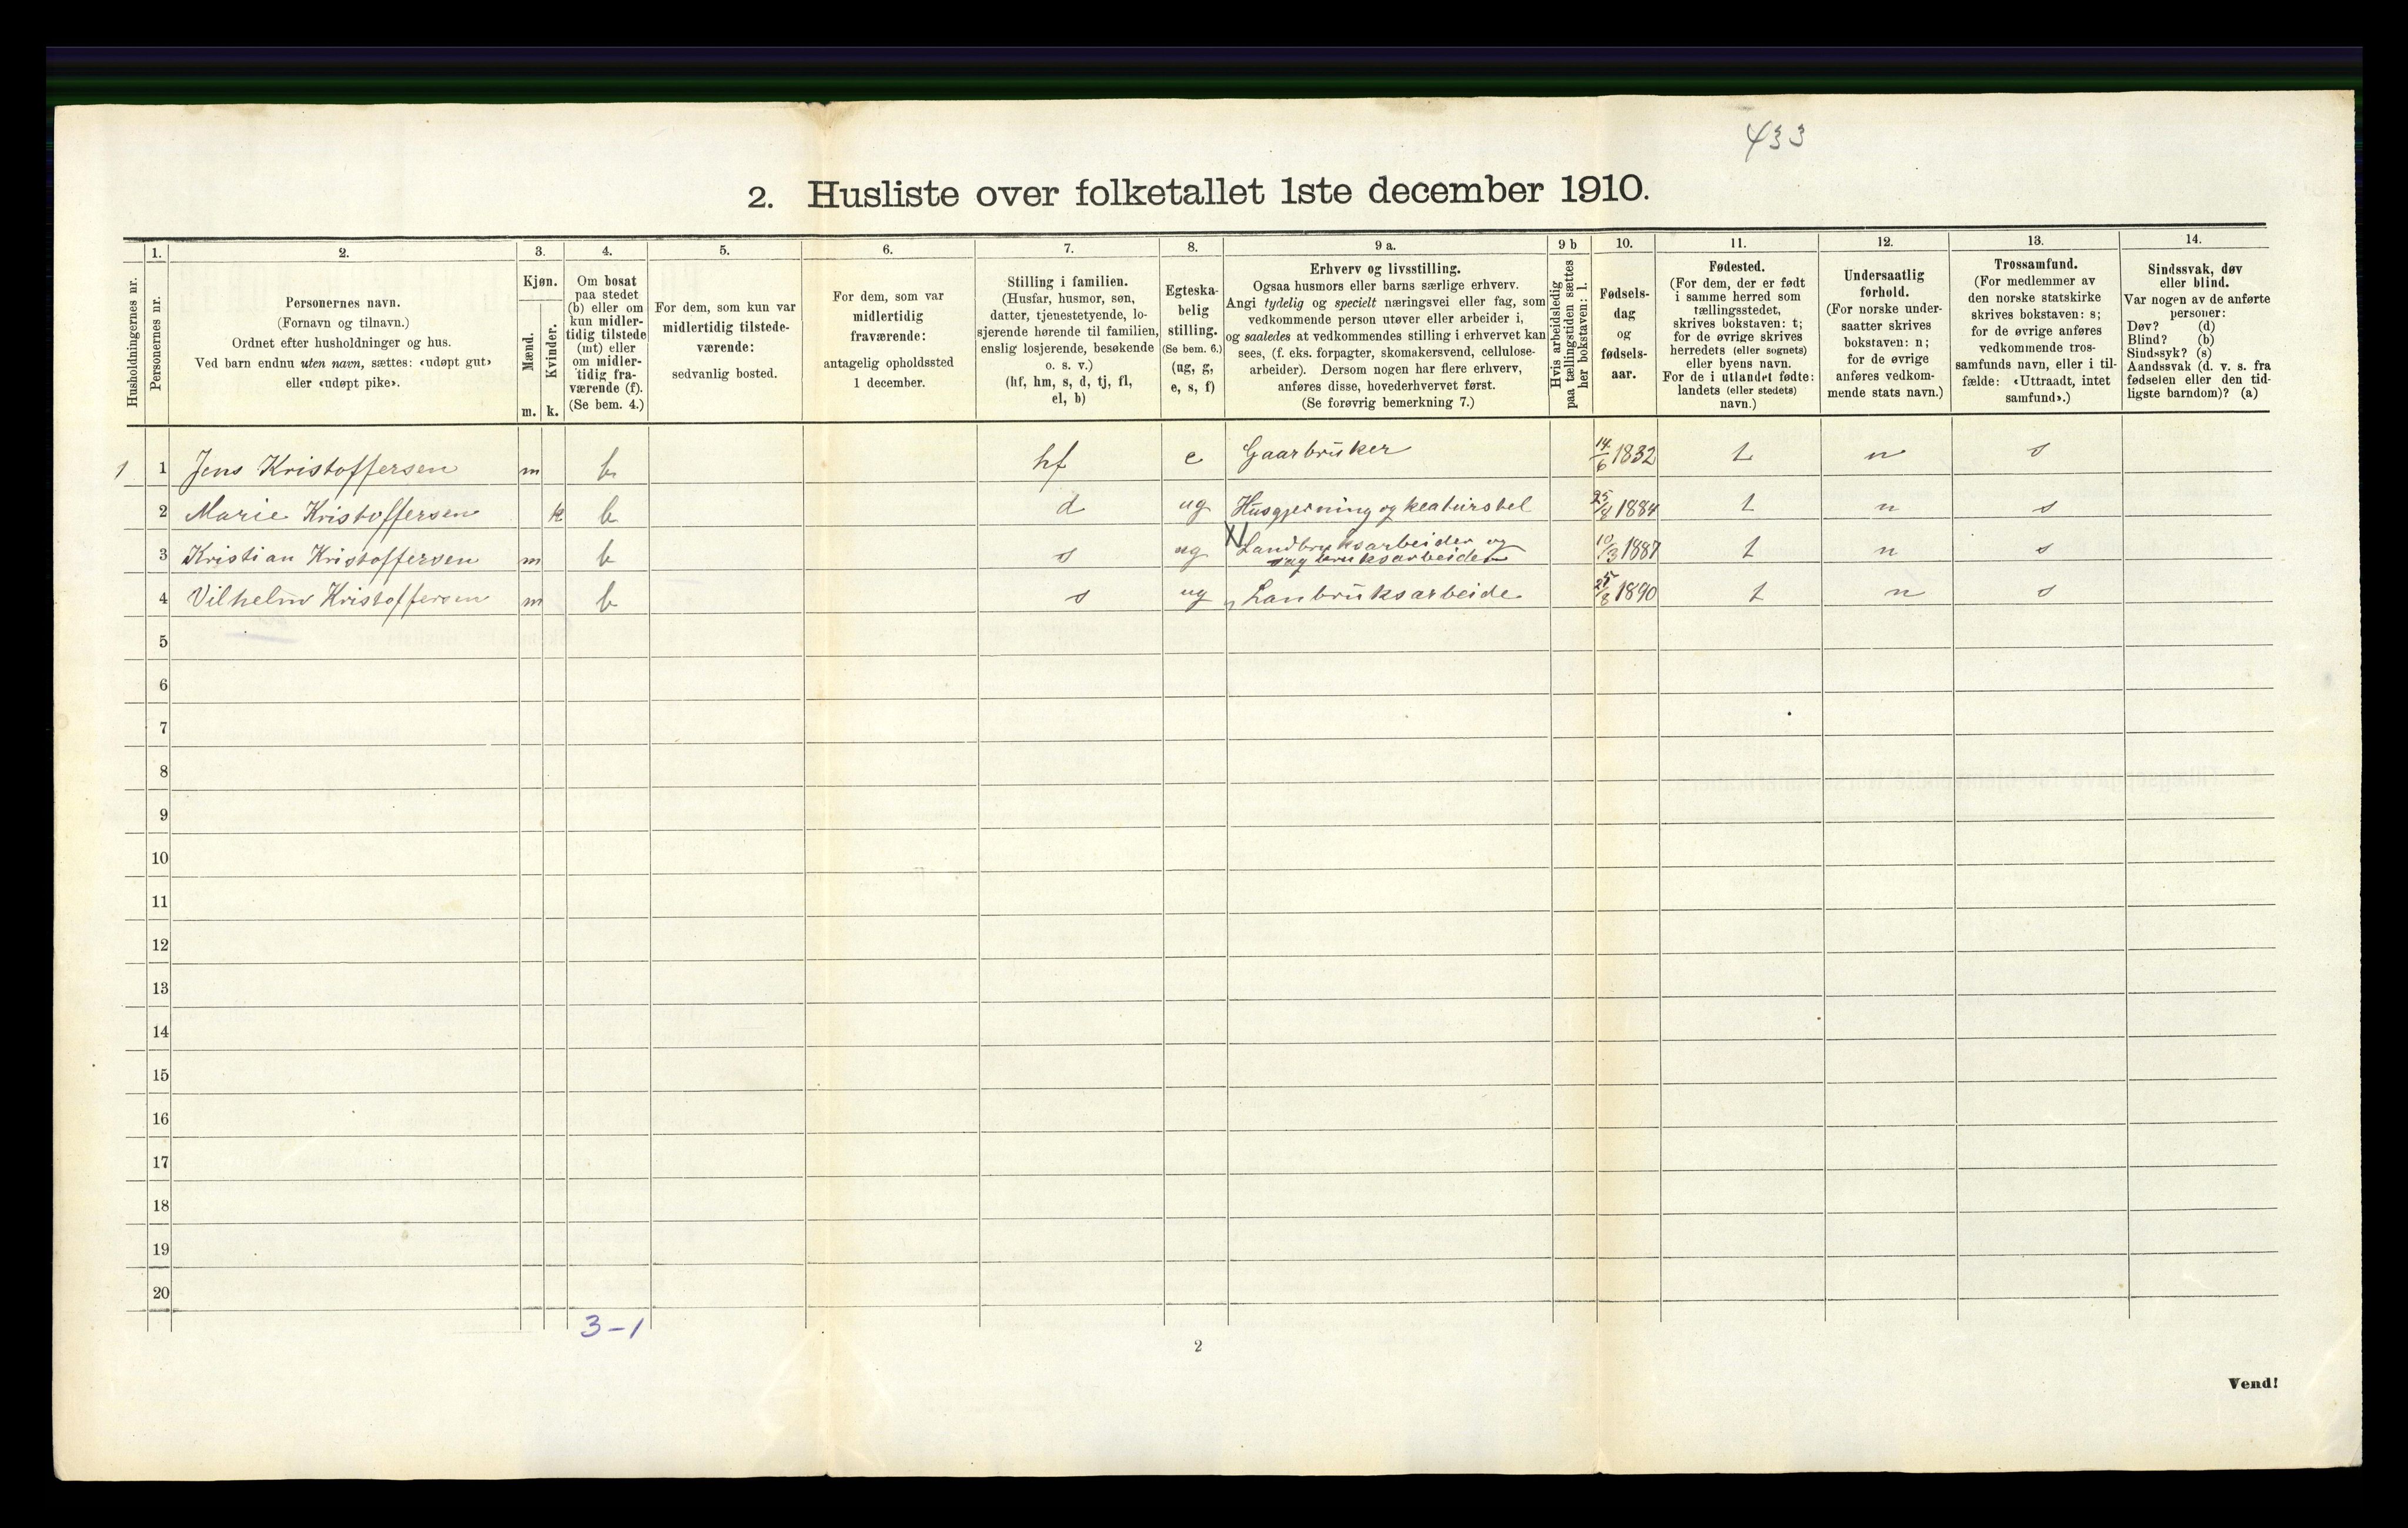 433
2. Husliste over folketallet 1ste december 1910.
Husholdningernes nr.
1.
Personernes nr.
2.
Personernes navn.
(Fornavn og tilnavn.)
Ordnet efter husholdninger og hus.
Ved barn endnu uten navn, sættes: «udøpt gut»
eller «udøpt pike».
3.
Kjøn.
Mænd.
Kvinder.
m. k.
4.
Om bosat
paa stedet
(b) eller om
kun midler-
tidig tilstede
(mt) eller
om midler-
tidig fra-
værende (f).
(Se bem. 4.)
5.
For dem, som kun var
midlertidig tilstede-
værende:
sedvanlig bosted.
6.
For dem, som var
midlertidig
fraværende:
antagelig opholdssted
1 december.
7.
Stilling i familien.
(Husfar, husmor, søn,
datter, tjenestetyende, lo-
sjerende hørende til familien,
enslig losjerende, besøkende
o. s. v.)
(hf, hm, s, d, tj, fl,
el, b)
8.
Egteska-
belig
stilling.
(Se bem. 6.)
(ug, g,
e, s, f)
9 a.
Erhverv og livsstilling.
Ogsaa husmors eller barns særlige erhverv.
Angi tydelig og specielt næringsvei eller fag, som
vedkommende person utøver eller arbeider i,
og saaledes at vedkommendes stilling i erhvervet kan
sees, (f. eks. forpagter, skomakersvend, cellulose-
arbeider). Dersom nogen har flere erhverv,
anføres disse, hovederhvervet først.
(Se forøvrig bemerkning 7.)
9 b
Hvis arbeidsledig
paa tællingstiden sættes
her bokstaven: l.
10.
Fødsels-
dag
og
fødsels-
aar.
11.
Fødested.
(For dem, der er født
i samme herred som
tællingsstedet,
skrives bokstaven: t;
for de øvrige skrives
herredets (eller sognets)
eller byens navn.
For de i utlandet fødte:
landets (eller stedets)
navn.)
12.
Undersaatlig
forhold.
(For norske under-
saatter skrives
bokstaven: n;
for de øvrige
anføres vedkom-
mende stats navn.)
13.
Trossamfund.
(For medlemmer av
den norske statskirke
skrives bokstaven: s;
for de øvrige anføres
vedkommende tros-
samfunds navn, eller i til-
fælde: «Uttraadt, intet
samfund».)
14.
Sindssvak, døv
eller blind.
Var nogen av de anførte
personer:
Døv? (d)
Blind? (b)
Sindssyk? (s)
Aandssvak (d. v. s. fra
fødselen eller den tid-
ligste barndom)? (a)
1 1 Jens Kristoffersen m b hf e Gaarbrüker 14/6 1832 t n s
2 Marie Kristoffersen k b d ug Husgjerning og kreaturstel 25/4 1884 t n s
3 Kristian Kristoffersen m b s ug Landbruksarbeider og
sagbruksarbeider 10/3 1887 t n s
4 Vilhelm Kristoffersen m b s ug Lanbrüksarbeide 25/8 1890 t n s
5
6
7
8
9
10
11
12
13
14
15
16
17
18
19
20
3-1
2
Vend!